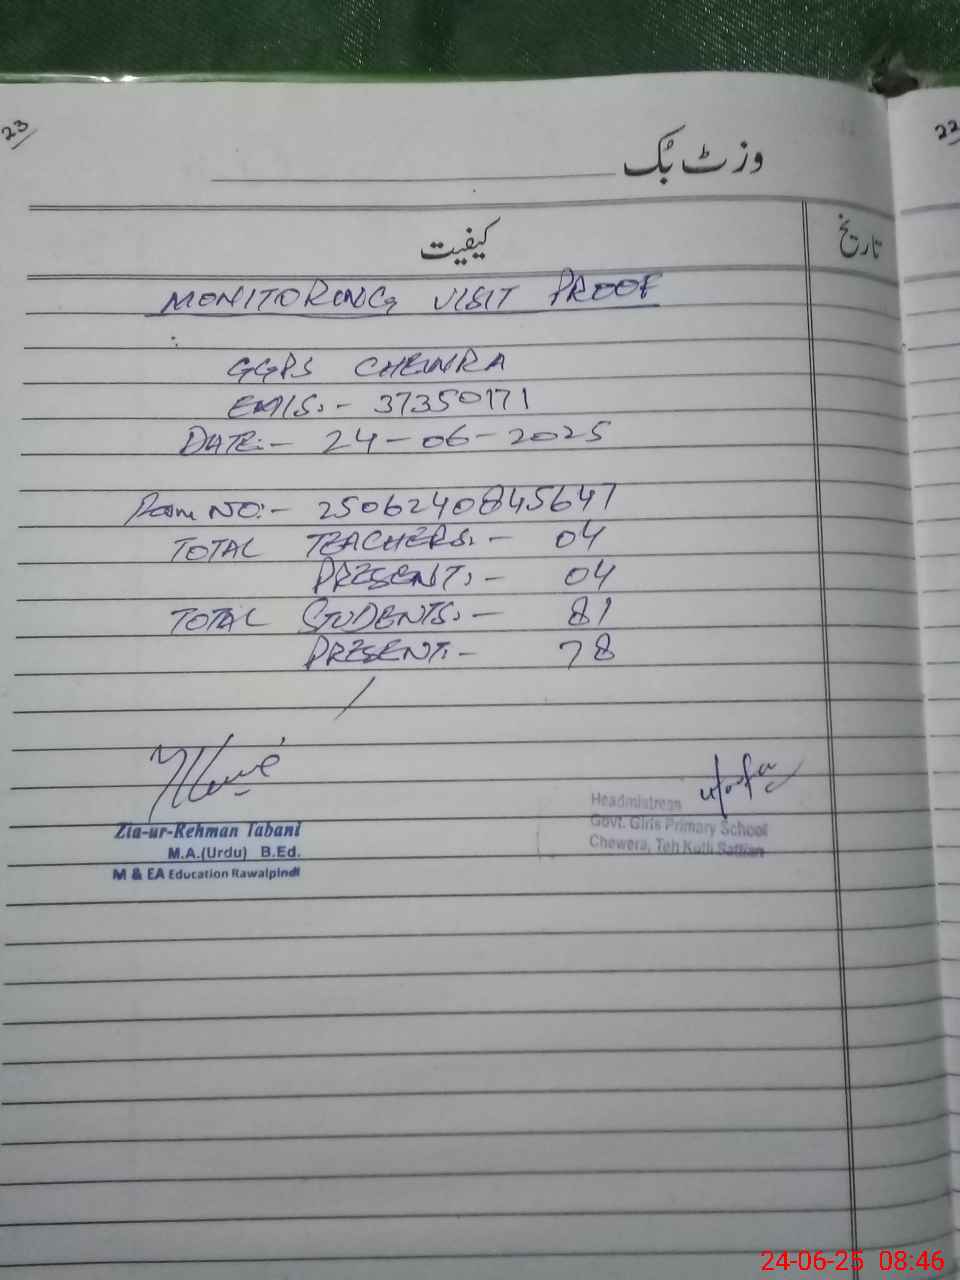 23
22
وزٹ بُک
کیفیت
تاریخ
MONITORING VISIT PROOF
GGPS CHEWRA
EMIS:- 37350171
DATE:- 24-06-2025
NO:- 2506240845647
TOTAL TEACHERS:- 04
PRESENT:- 04
TOTAL STUDENTS:- 81
PRESENT:- 78
Zia-ur-Rehman Tabani
M.A.(Urdu) B.Ed.
M & EA Education Rawalpindi
Headmistress
Govt. Girls Primary School
Chewera, Teh Kotli Sattian
24-06-25 08:46